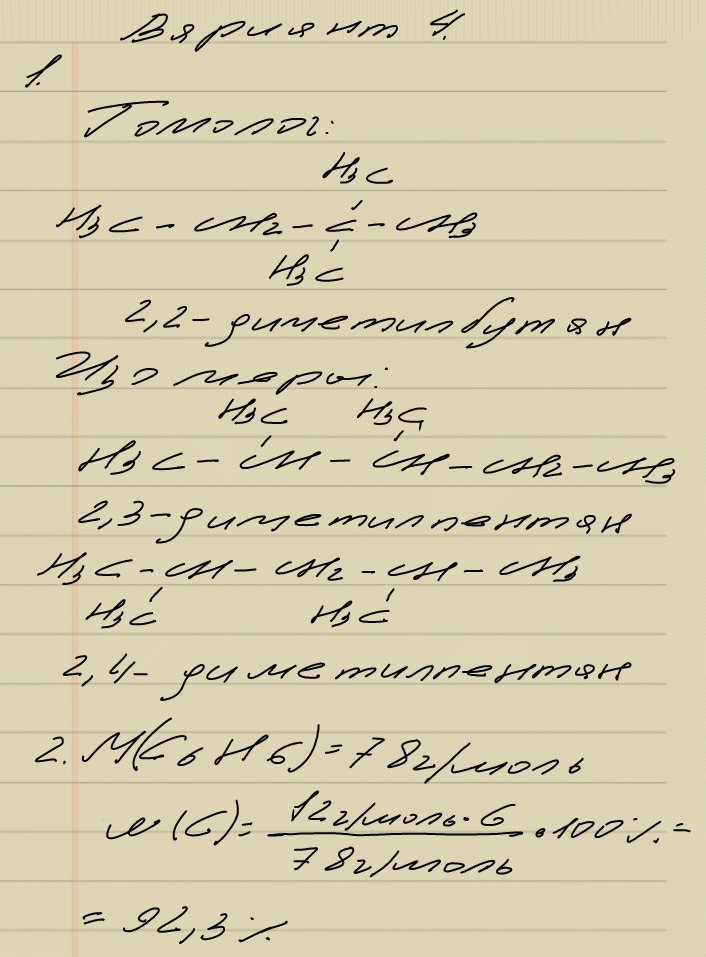 Вариант 4.
1.
Гомолог:
H3C
H3C - CH2 - C - CH3
H3C
2,2 - диметилбутан
Изомеры:
H3C H3C
H3C - CH - CH - CH2 - CH3
2,3 - диметилпентан
H3C - CH - CH2 - CH - CH3
H3C H3C
2,4 - диметилпентан
2. M(C6H6) = 78г/моль
w(C) = 12г/моль·6 / 78г/моль · 100% =
= 92,3%